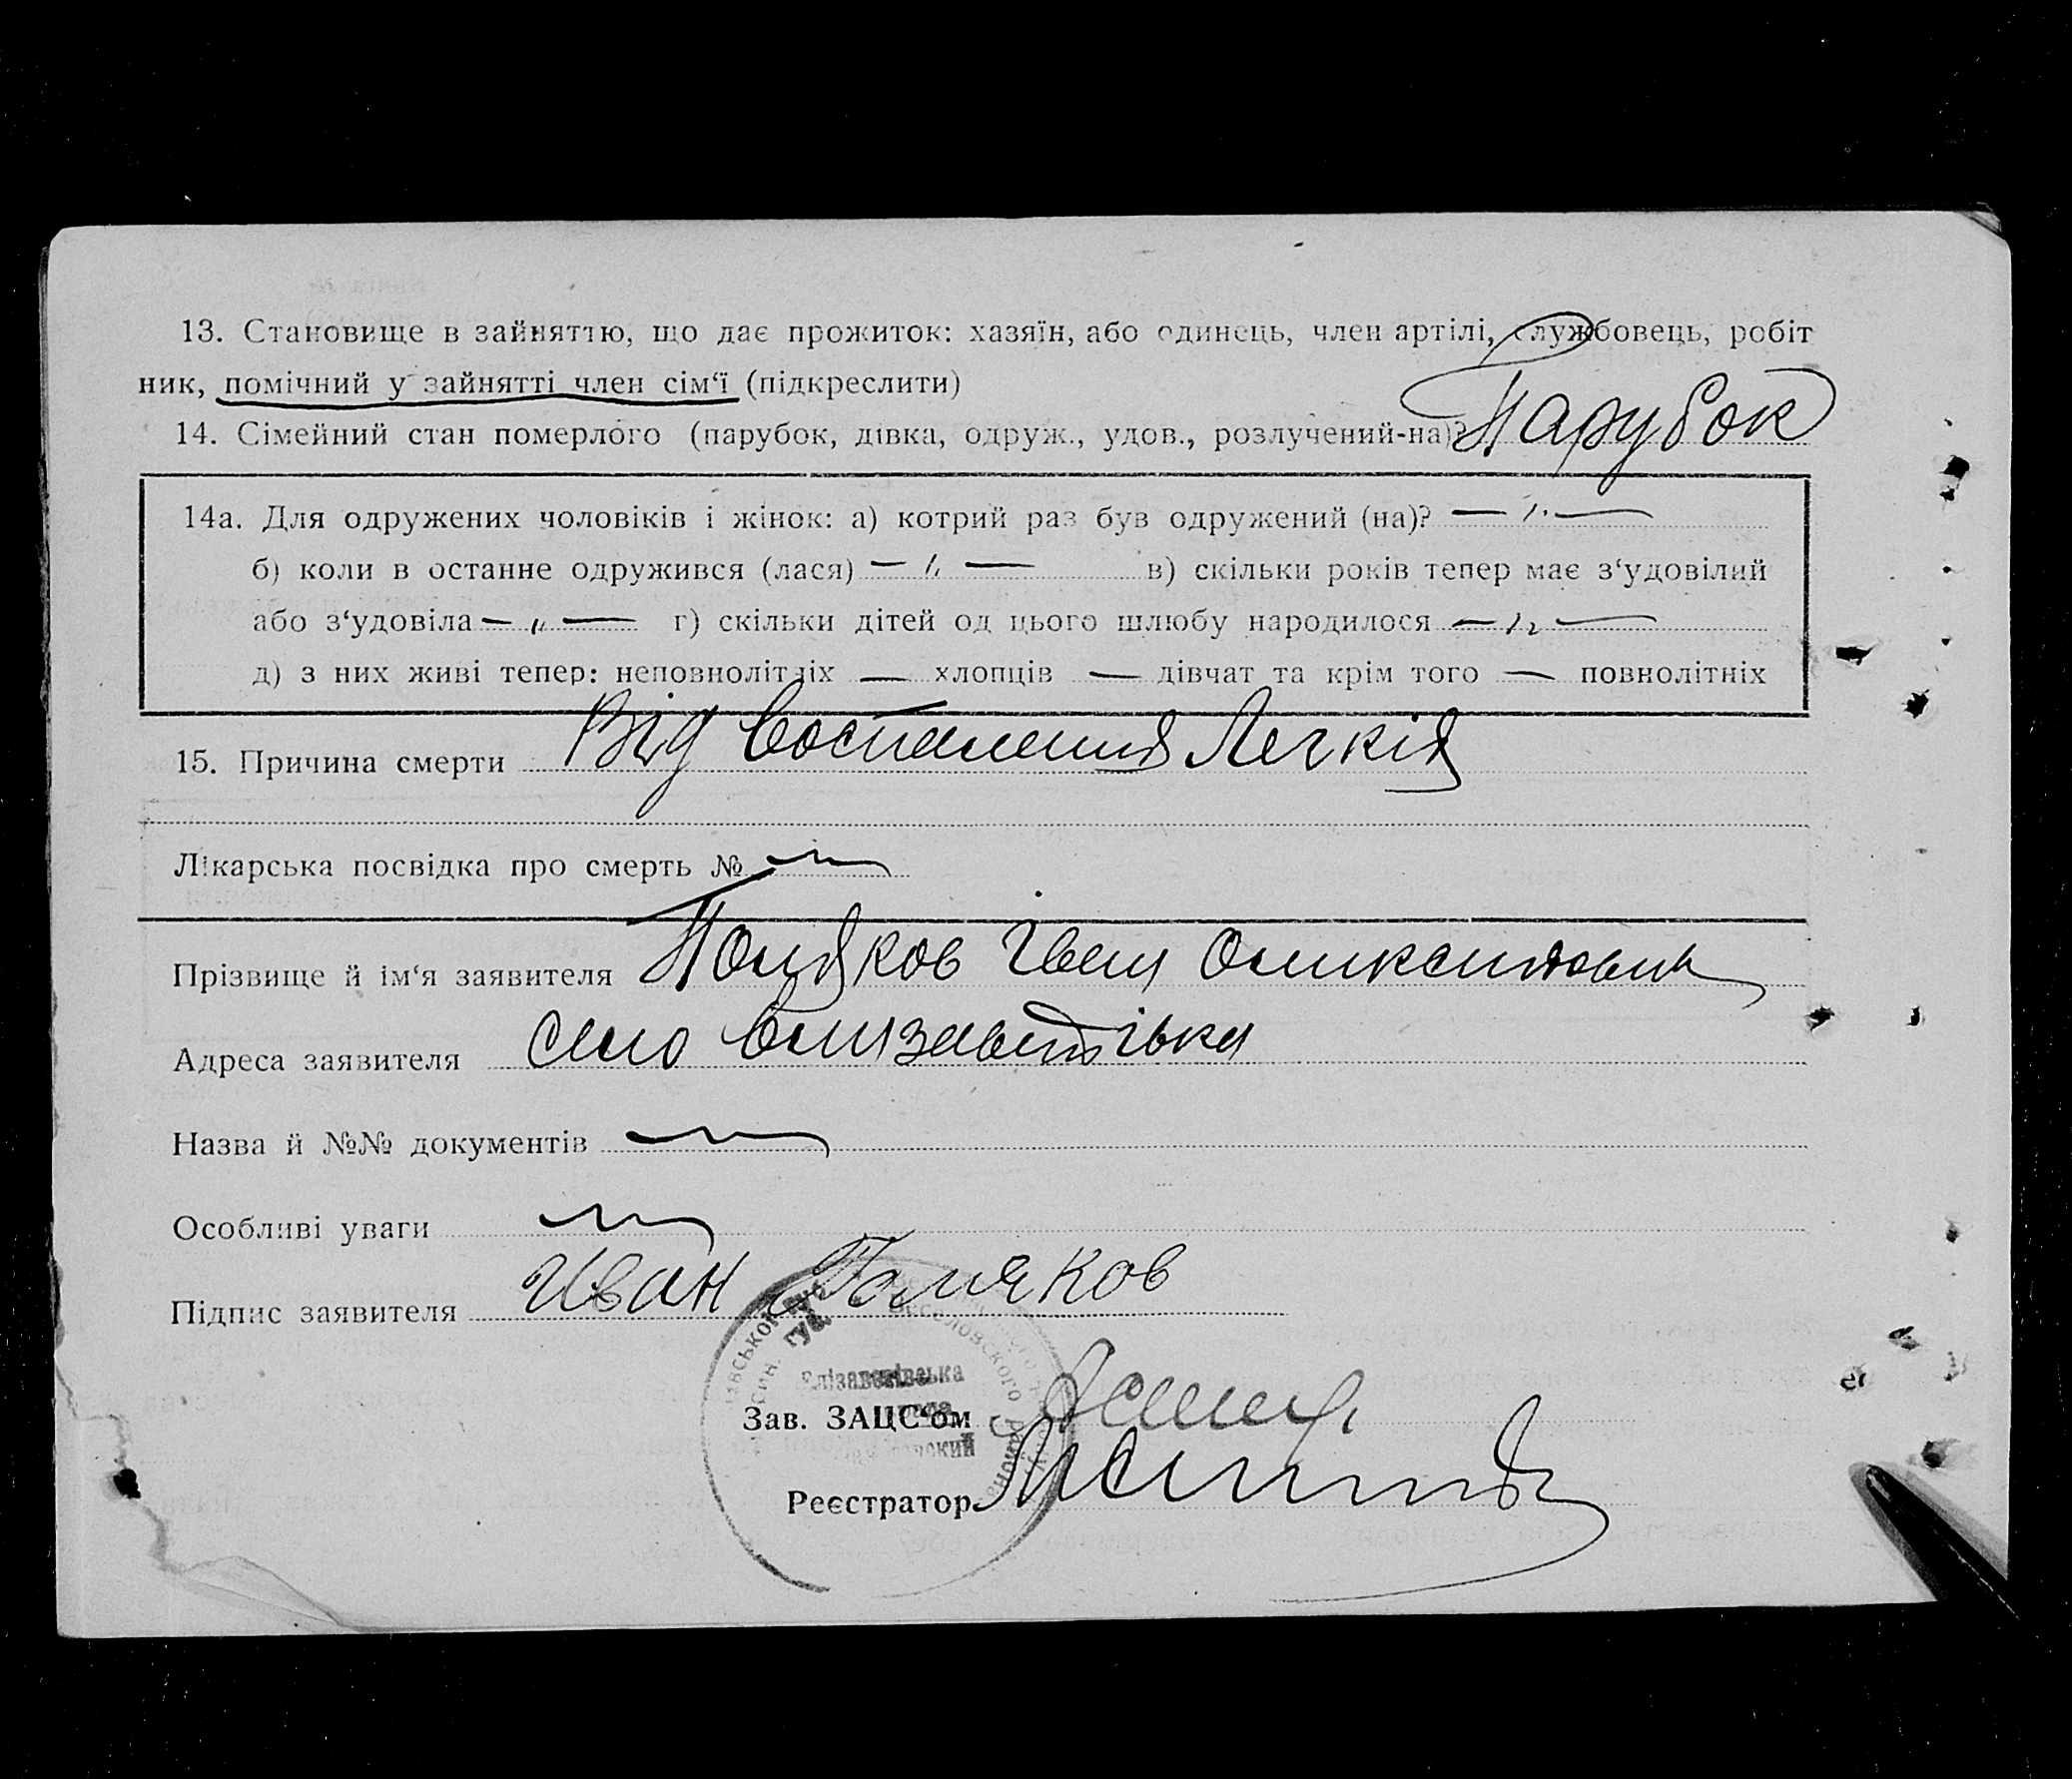 13. Становище в зайняттю, що дає прожиток: хазяїн, або одинець, член артілі, службовець, робіт
ник, помічний у зайнятті член сім‘ї (підкреслити)
14. Сімейний стан померлого (парубок, дівка, одруж., удов., розлучений-на)? Парубок
14а. Для одружених чоловіків і жінок: а) котрий раз був одружений (на)? — " —
б) коли в останне одружився (лася) — " — в) скільки років тепер має з‘удовілий
або з‘удовіла — " — г) скільки дітей од цього шлюбу народилося — " —
д) з них живі тепер: неповнолітніх — хлопців — дівчат та крім того — повнолітніх
15. Причина смерти Від воспаления Легкія
Лікарська посвідка про смерть №
Прізвище й ім‘я заявителя Поляков Іван
Адреса заявителя село Елизаветівка
Назва й №№ документів
Особливі уваги
Підпис заявителя Иван Поляков
Єлізаветівська
Зав. ЗАЦС‘ом
Реєстратор